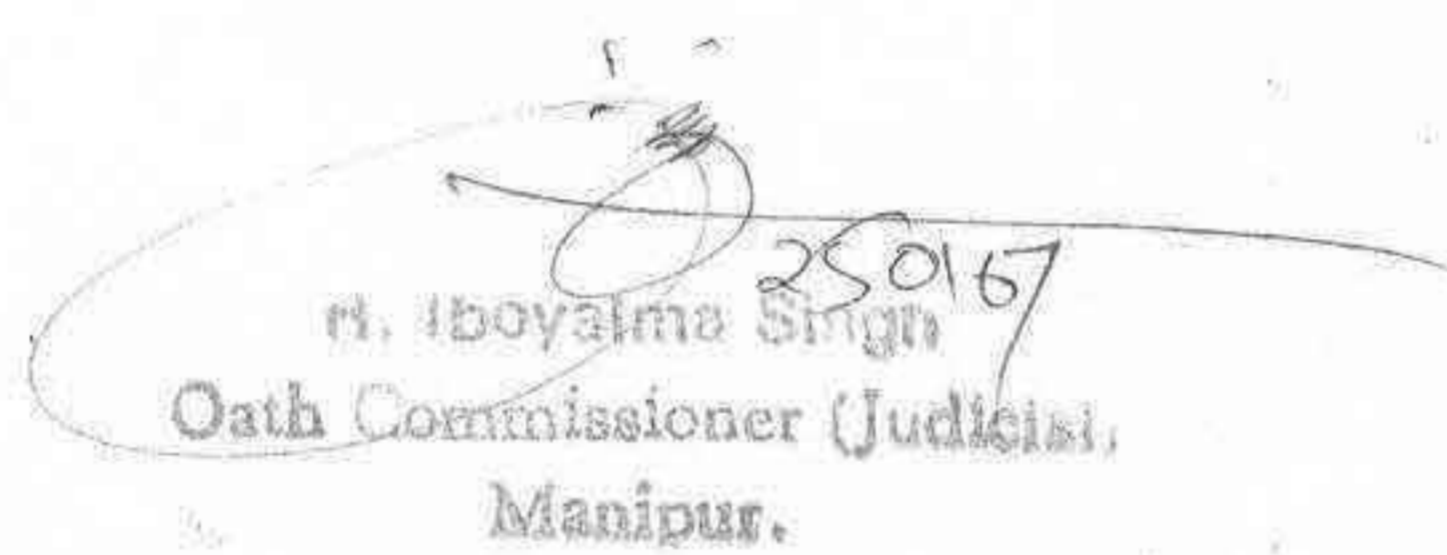 250167
H. Iboyaima Singh
Oath Commissioner (Judicial,
Manipur.